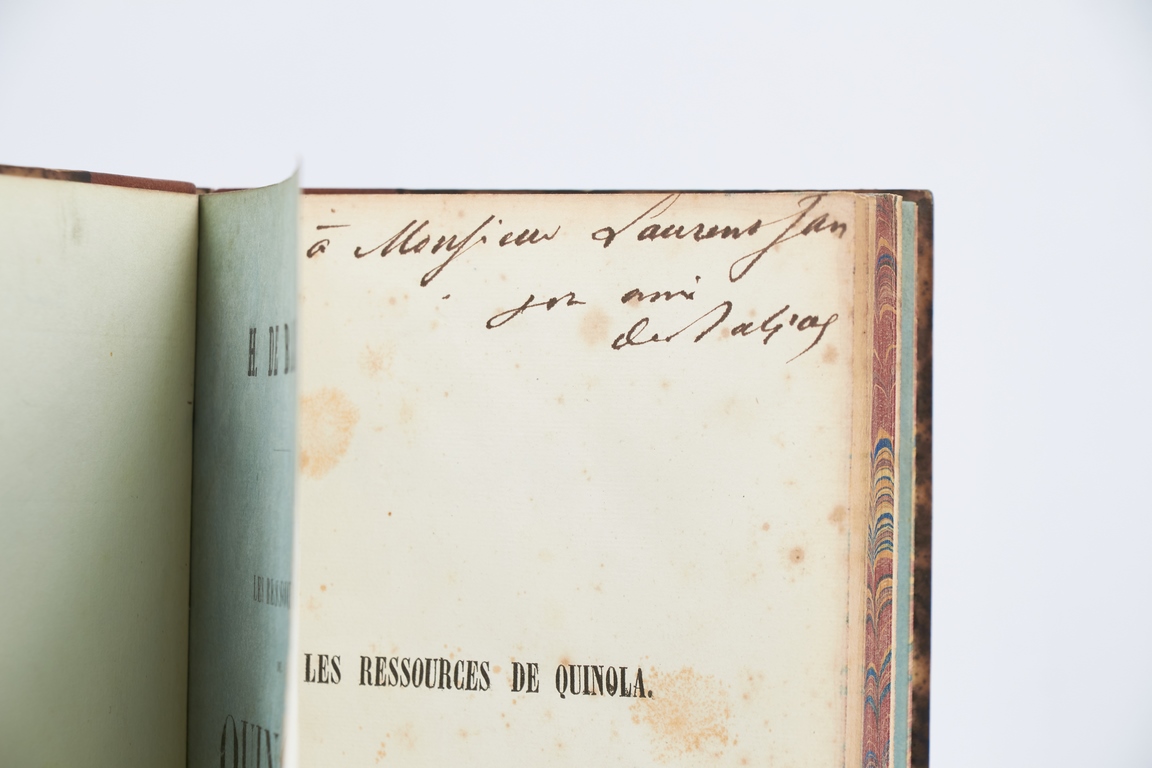 H. DE B
LES RESSOU
QUIN
à Monsieur Laurent Jan
son ami
de Balzac
LES RESSOURCES DE QUINOLA.